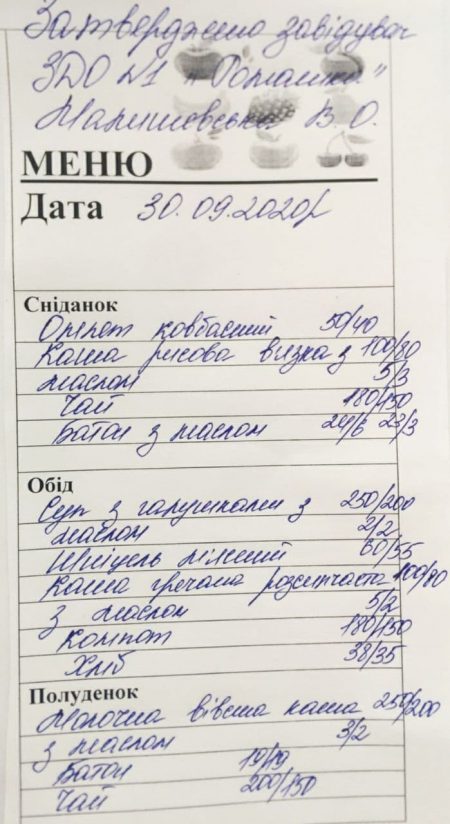 Затверджено завідувач
ЗДО №1 "Ромашка"
Малишевська В.О.
МЕНЮ
Дата 30.09.2020р
Сніданок
Омлет ковбасний 50/40
Каша рисова вязка з 100/80
маслом 5/3
Чай 180/150
Батон з маслом 24/6 23/3
Обід
Суп з галушками з 250/200
маслом 2/2
Шніцель ніжний 60/55
Каша гречана розсипчаста 100/80
з маслом 5/2
Компот 180/150
Хліб 38/35
Полуденок
Молочна вівсяна каша 250/200
з маслом 3/2
Батон 19/19
Чай 200/150